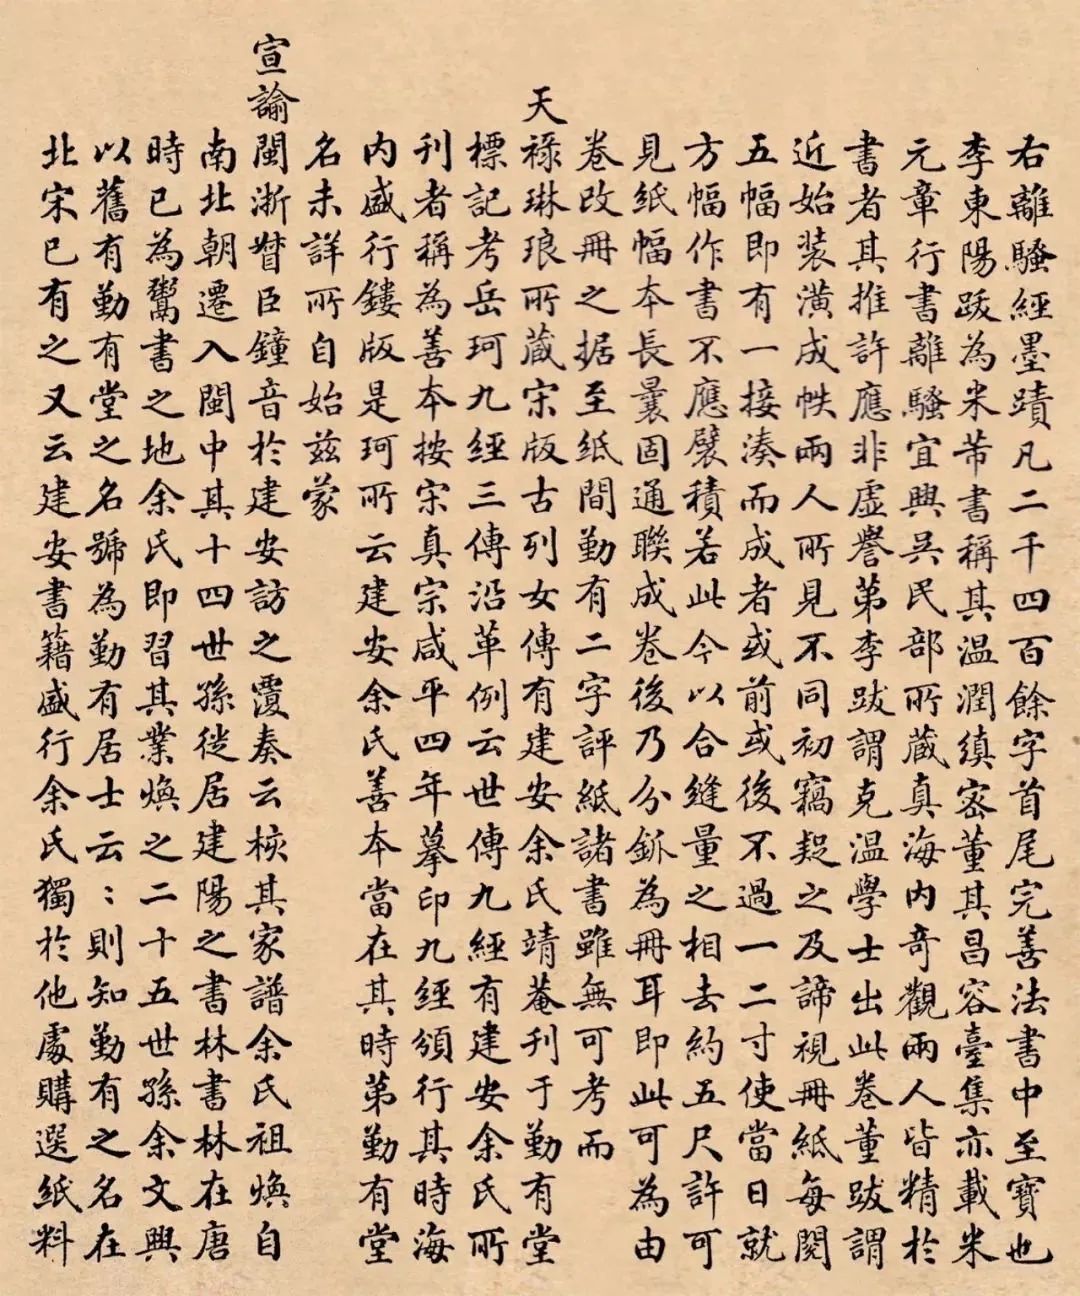 右離騷經墨蹟凡二千四百餘字首尾完善法書中至寶也
李東陽跋為米芾書稱其溫潤縝密董其昌容臺集亦載米
元章行書離騷宜興吳民部所藏真海內奇觀兩人皆精於
書者其推許應非虛譽第李跋謂克溫學士出此卷董跋謂
近始裝潢成帙兩人所見不同初竊疑之及諦視冊紙每閱
五幅即有一接湊而成者或前或後不過一二寸使當日就
方幅作書不應襞積若此今以合縫量之相去約五尺許可
見紙幅本長曩固通聯成卷後乃分鈲為冊耳即此可為由
卷改冊之据至紙間勤有二字評紙諸書雖無可考而
天祿琳琅所藏宋版古列女傳有建安余氏靖菴刊于勤有堂
標記考岳珂九經三傳沿革例云世傳九經有建安余氏所
刊者稱為善本按宋真宗咸平四年摹印九經頒行其時海
內盛行鏤版是珂所云建安余氏善本當在其時第勤有堂
名未詳所自始茲蒙
宣諭閩浙督臣鐘音於建安訪之覆奏云核其家譜余氏祖煥自
南北朝遷入閩中其十四世孫徙居建陽之書林書林在唐
時已為鬻書之地余氏即習其業煥之二十五世孫余文興
以舊有勤有堂之名號為勤有居士云:則知勤有之名在
北宋已有之又云建安書籍盛行余氏獨於他處購選紙料